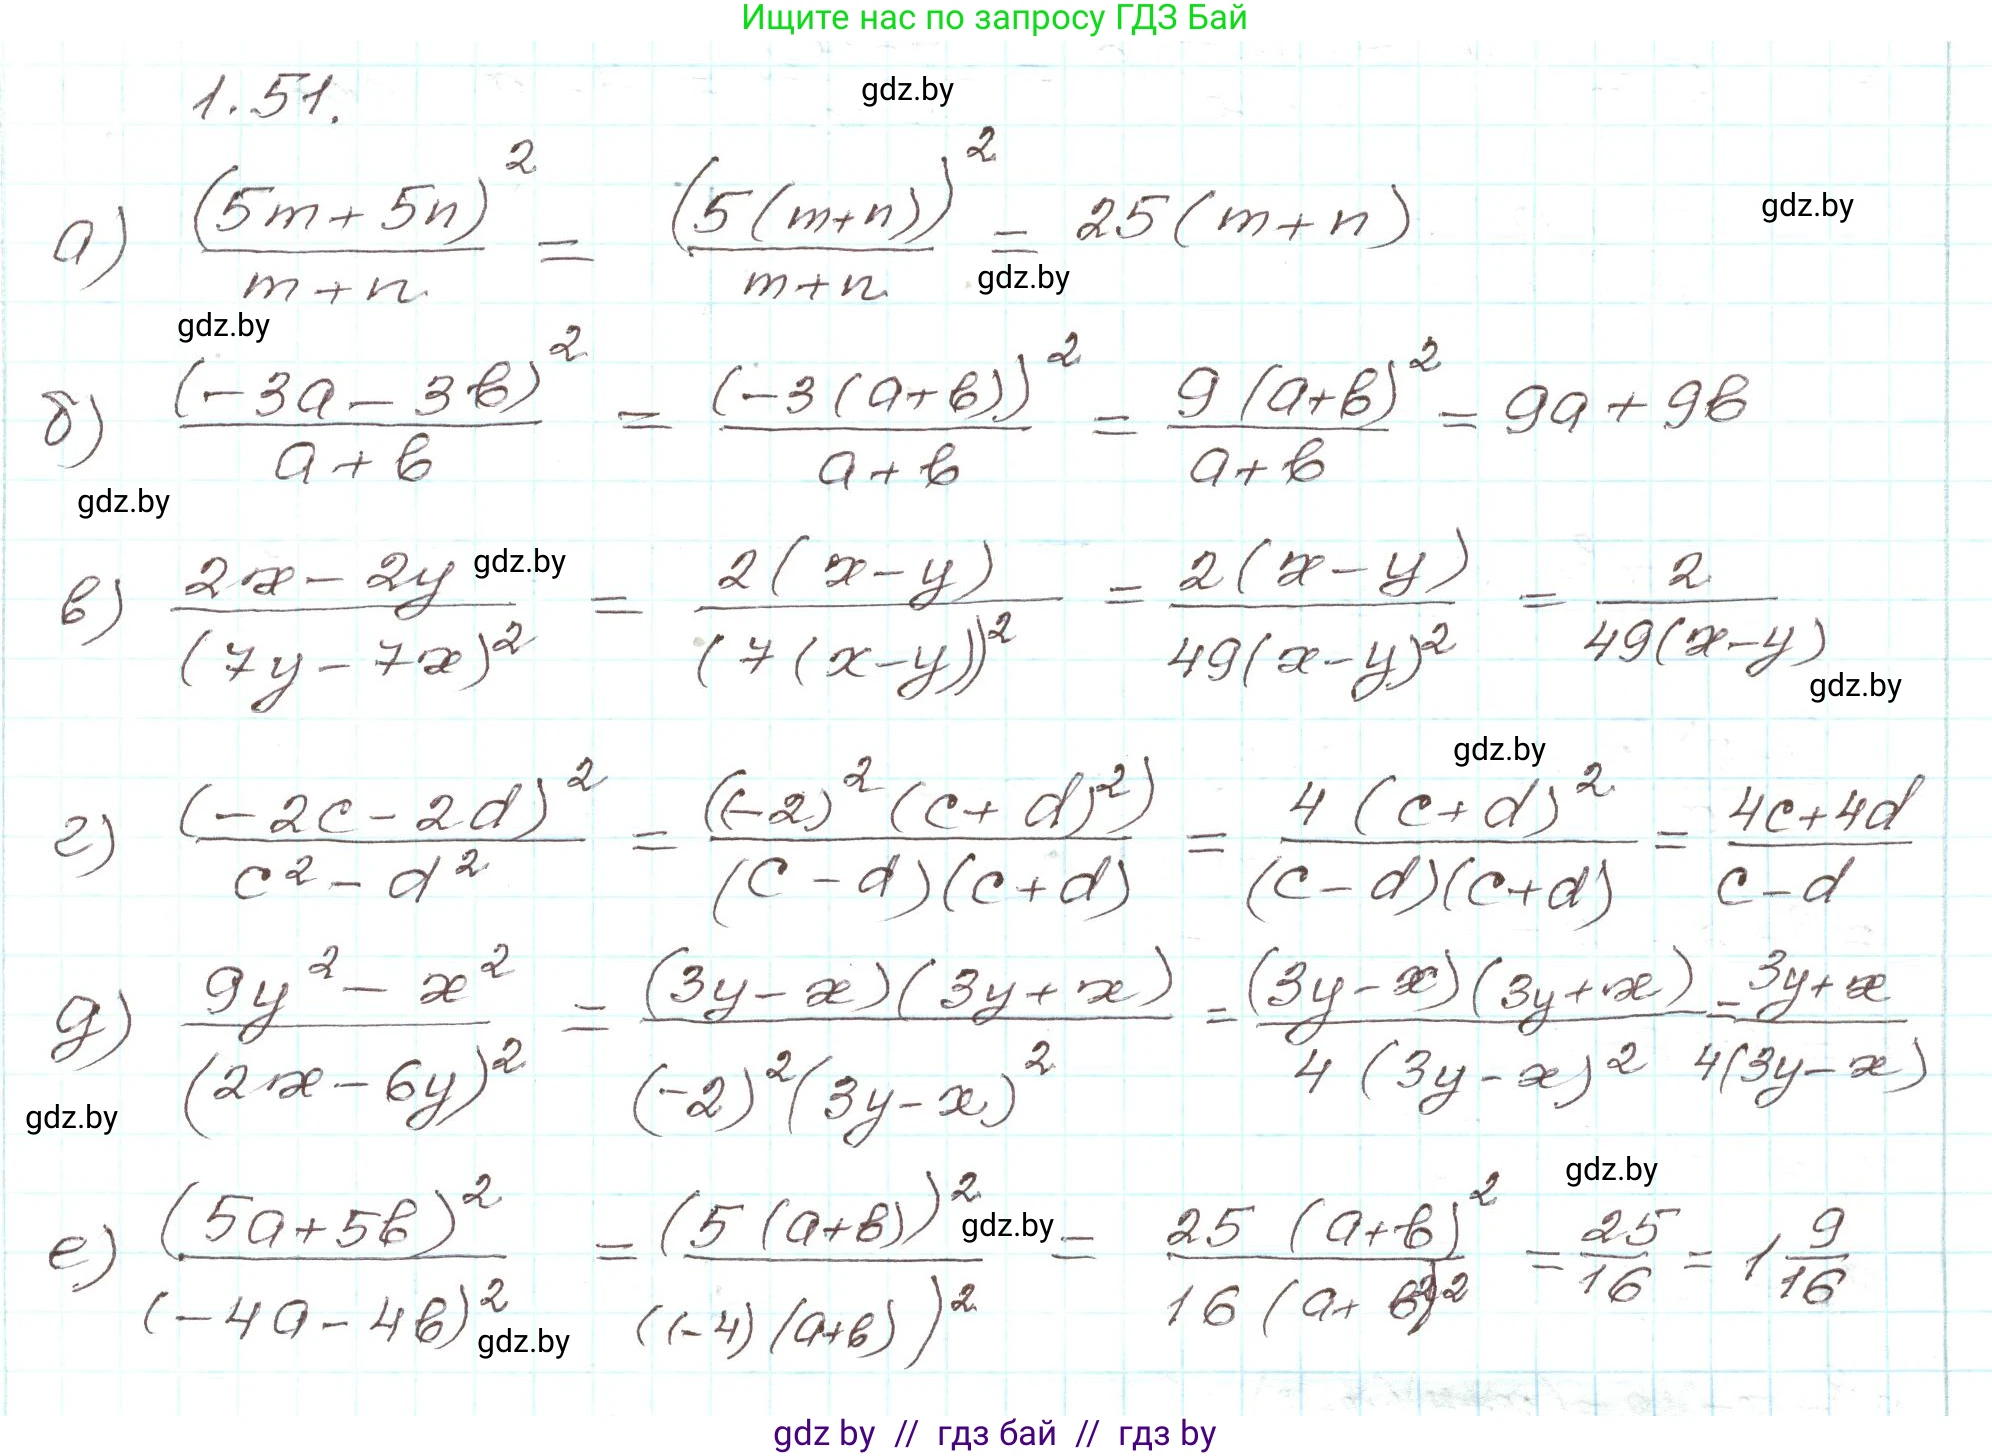 Ищите нас по запросу ГДЗ Бай
1.51.
gdz.by
а) (5m + 5n)² / (m + n) = (5(m+n))² / (m+n) = 25(m+n)
gdz.by
gdz.by
gdz.by
б) (-3a - 3в)² / (a + в) = (-3(a+в))² / (a + в) = 9(a+в)² / (a+в) = 9a + 9в
gdz.by
gdz.by
в) (2x - 2y) / (7y - 7x)² = 2(x - y) / (7(x-y))² = 2(x - y) / 49(x-y)² = 2 / 49(x-y)
gdz.by
gdz.by
г) (-2c - 2d)² / (c² - d²) = ((-2)²(c + d)²) / (c - d)(c+d) = 4(c+d)² / (c - d)(c+d) = (4c+4d) / (c - d)
д) (9y² - x²) / (2x - 6y)² = (3y - x)(3y + x) / (-2)²(3y - x)² = (3y - x)(3y + x) / 4(3y - x)² = (3y + x) / 4(3y - x)
gdz.by
gdz.by
е) (5a + 5в)² / (-4a - 4в)² = (5(a+в))² / ((-4)(a+в))² = 25(a+в)² / 16(a+в)² = 25/16 = 1 9/16
gdz.by
gdz.by
gdz by // гдз бай // гдз by